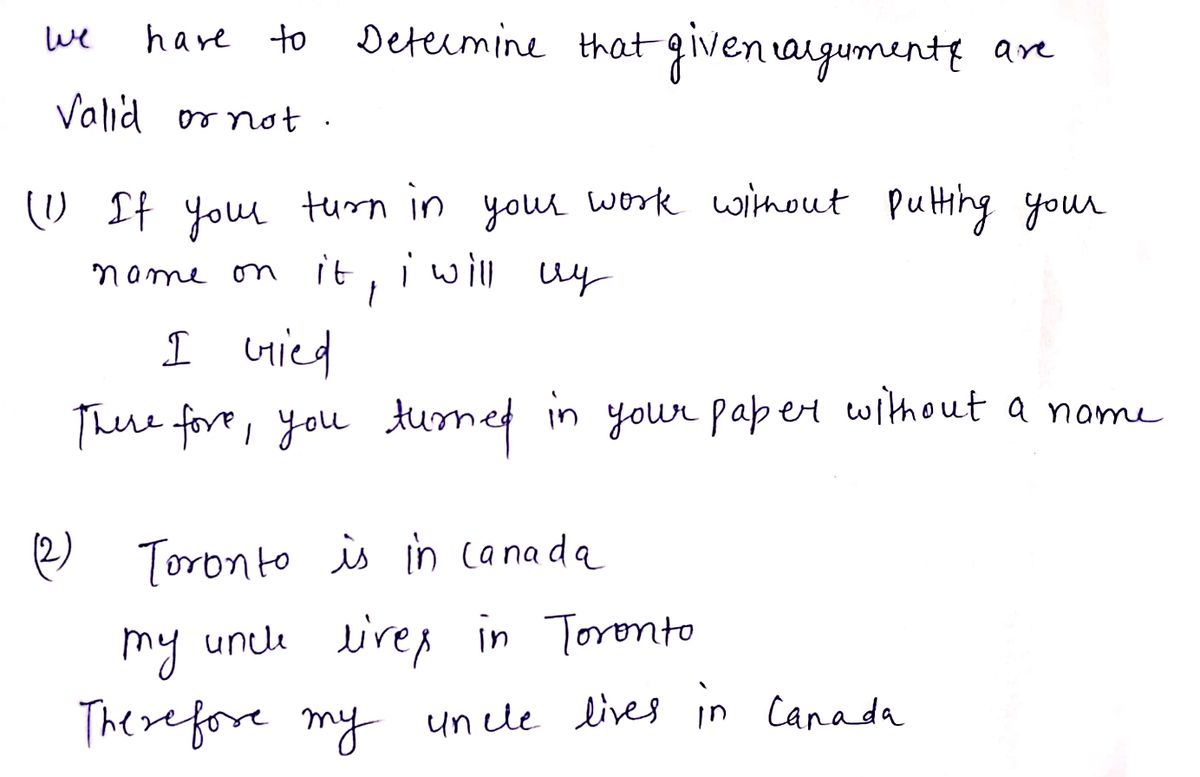 We have to Determine that given arguments are
Valid or not .
(1) If your turn in your work without putting your
name on it, i will cry
I cried
Therefore, you turned in your paper without a name
(2) Toronto is in canada
my uncle lives in Toronto
Therefore my uncle lives in Canada